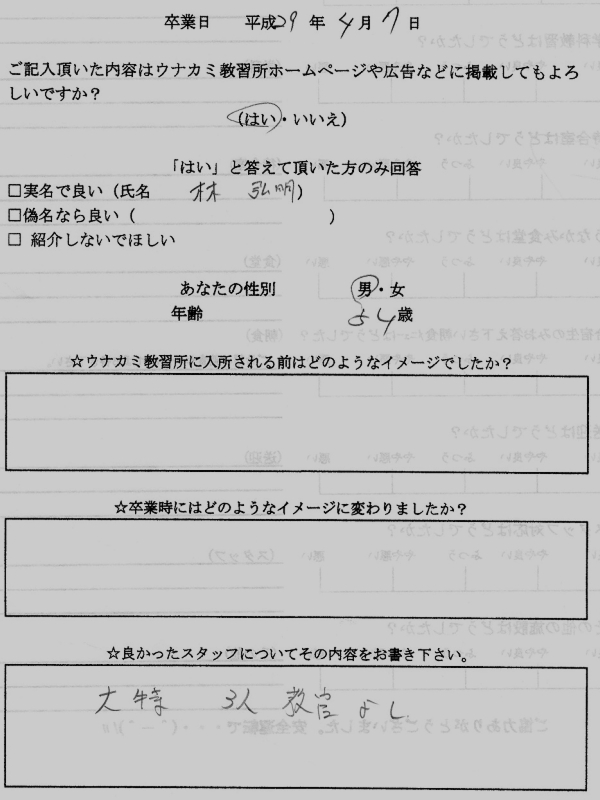 卒業日 平成29年4月7日
ご記入頂いた内容はウナカミ教習所ホームページや広告などに掲載してもよろ
しいですか?
(はい・いいえ)
「はい」と答えて頂いた方のみ回答
□実名で良い(氏名 林 弘明)
□偽名なら良い( )
□ 紹介しないでほしい
あなたの性別 男・女
年齢 54歳
☆ウナカミ教習所に入所される前はどのようなイメージでしたか?
☆卒業時にはどのようなイメージに変わりましたか?
☆良かったスタッフについてその内容をお書き下さい。
大特 3人 教官 よし